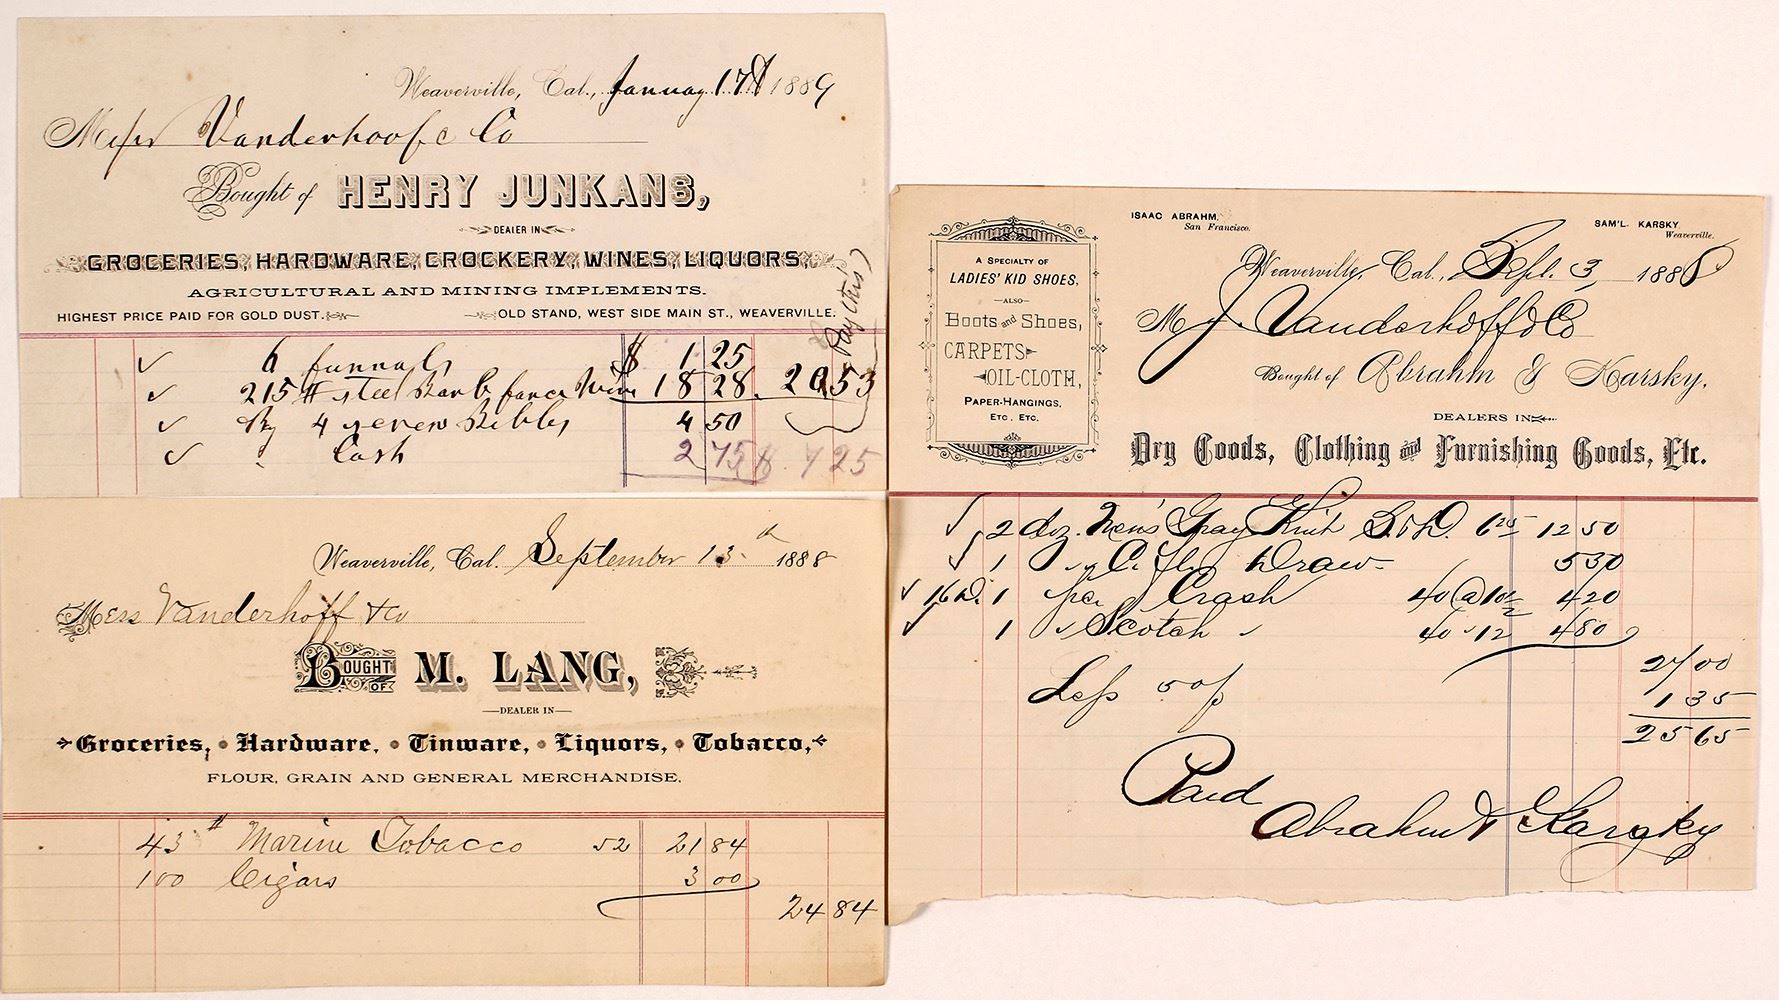 Weaverville, Cal., January 17th 1889
Messr Vanderhoof & Co
Bought of HENRY JUNKANS,
DEALER IN
GROCERIES, HARDWARE, CROCKERY, WINES, LIQUORS,
AGRICULTURAL AND MINING IMPLEMENTS.
HIGHEST PRICE PAID FOR GOLD DUST. OLD STAND, WEST SIDE MAIN ST., WEAVERVILLE.
6 funnals $ 1 25
215 # steel Barb fance Wire 18 28 
By 4 seven Bibbs 4 50
Cash 2 75 $ 7 25
Weaverville, Cal. September 13th 1888
Mess Vanderhoff & Co
BOUGHT OF M. LANG,
DEALER IN
Groceries, Hardware, Tinware, Liquors, Tobacco,
FLOUR, GRAIN AND GENERAL MERCHANDISE.
43 # Marine Tobacco 52 21 84
100 Cigars 3 00
24 84
ISAAC ABRAHM, San Francisco.
SAM'L KARSKY Weaverville.
A SPECIALTY OF
LADIES' KID SHOES,
ALSO
Boots and Shoes,
CARPETS
OIL-CLOTH,
PAPER-HANGINGS,
ETC, ETC.
Weaverville, Cal., Sept. 3, 1888
M J. Vanderhoff & Co
Bought of Abrahm & Karsky.
DEALERS IN
Dry Goods, Clothing and Furnishing Goods, Etc.
2 doz. Men's Gray Knit S & D. 6 25 12 50
1 " C. fl. Draw- 5 50
16 D. 1 pce Crash 40 @ 10 1/2 4 20
1 " Scotch " 40 " 12 4 80
27 00
Less 5 % 1 35
25 65
Paid
Abrahm & Karsky